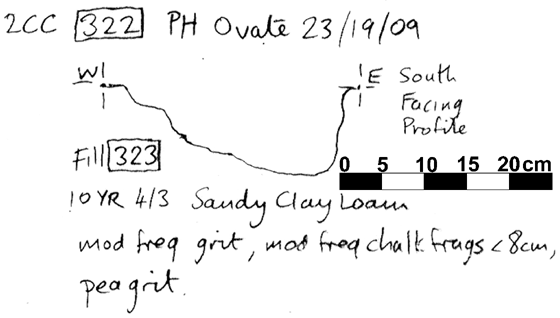 2CC 322 PH Ovate 23/19/09
W E South
Facing
Profile
Fill 323
0 5 10 15 20cm
10YR 4/3 Sandy Clay Loam
mod freq grit, mod freq chalk frags < 8cm,
pea grit.